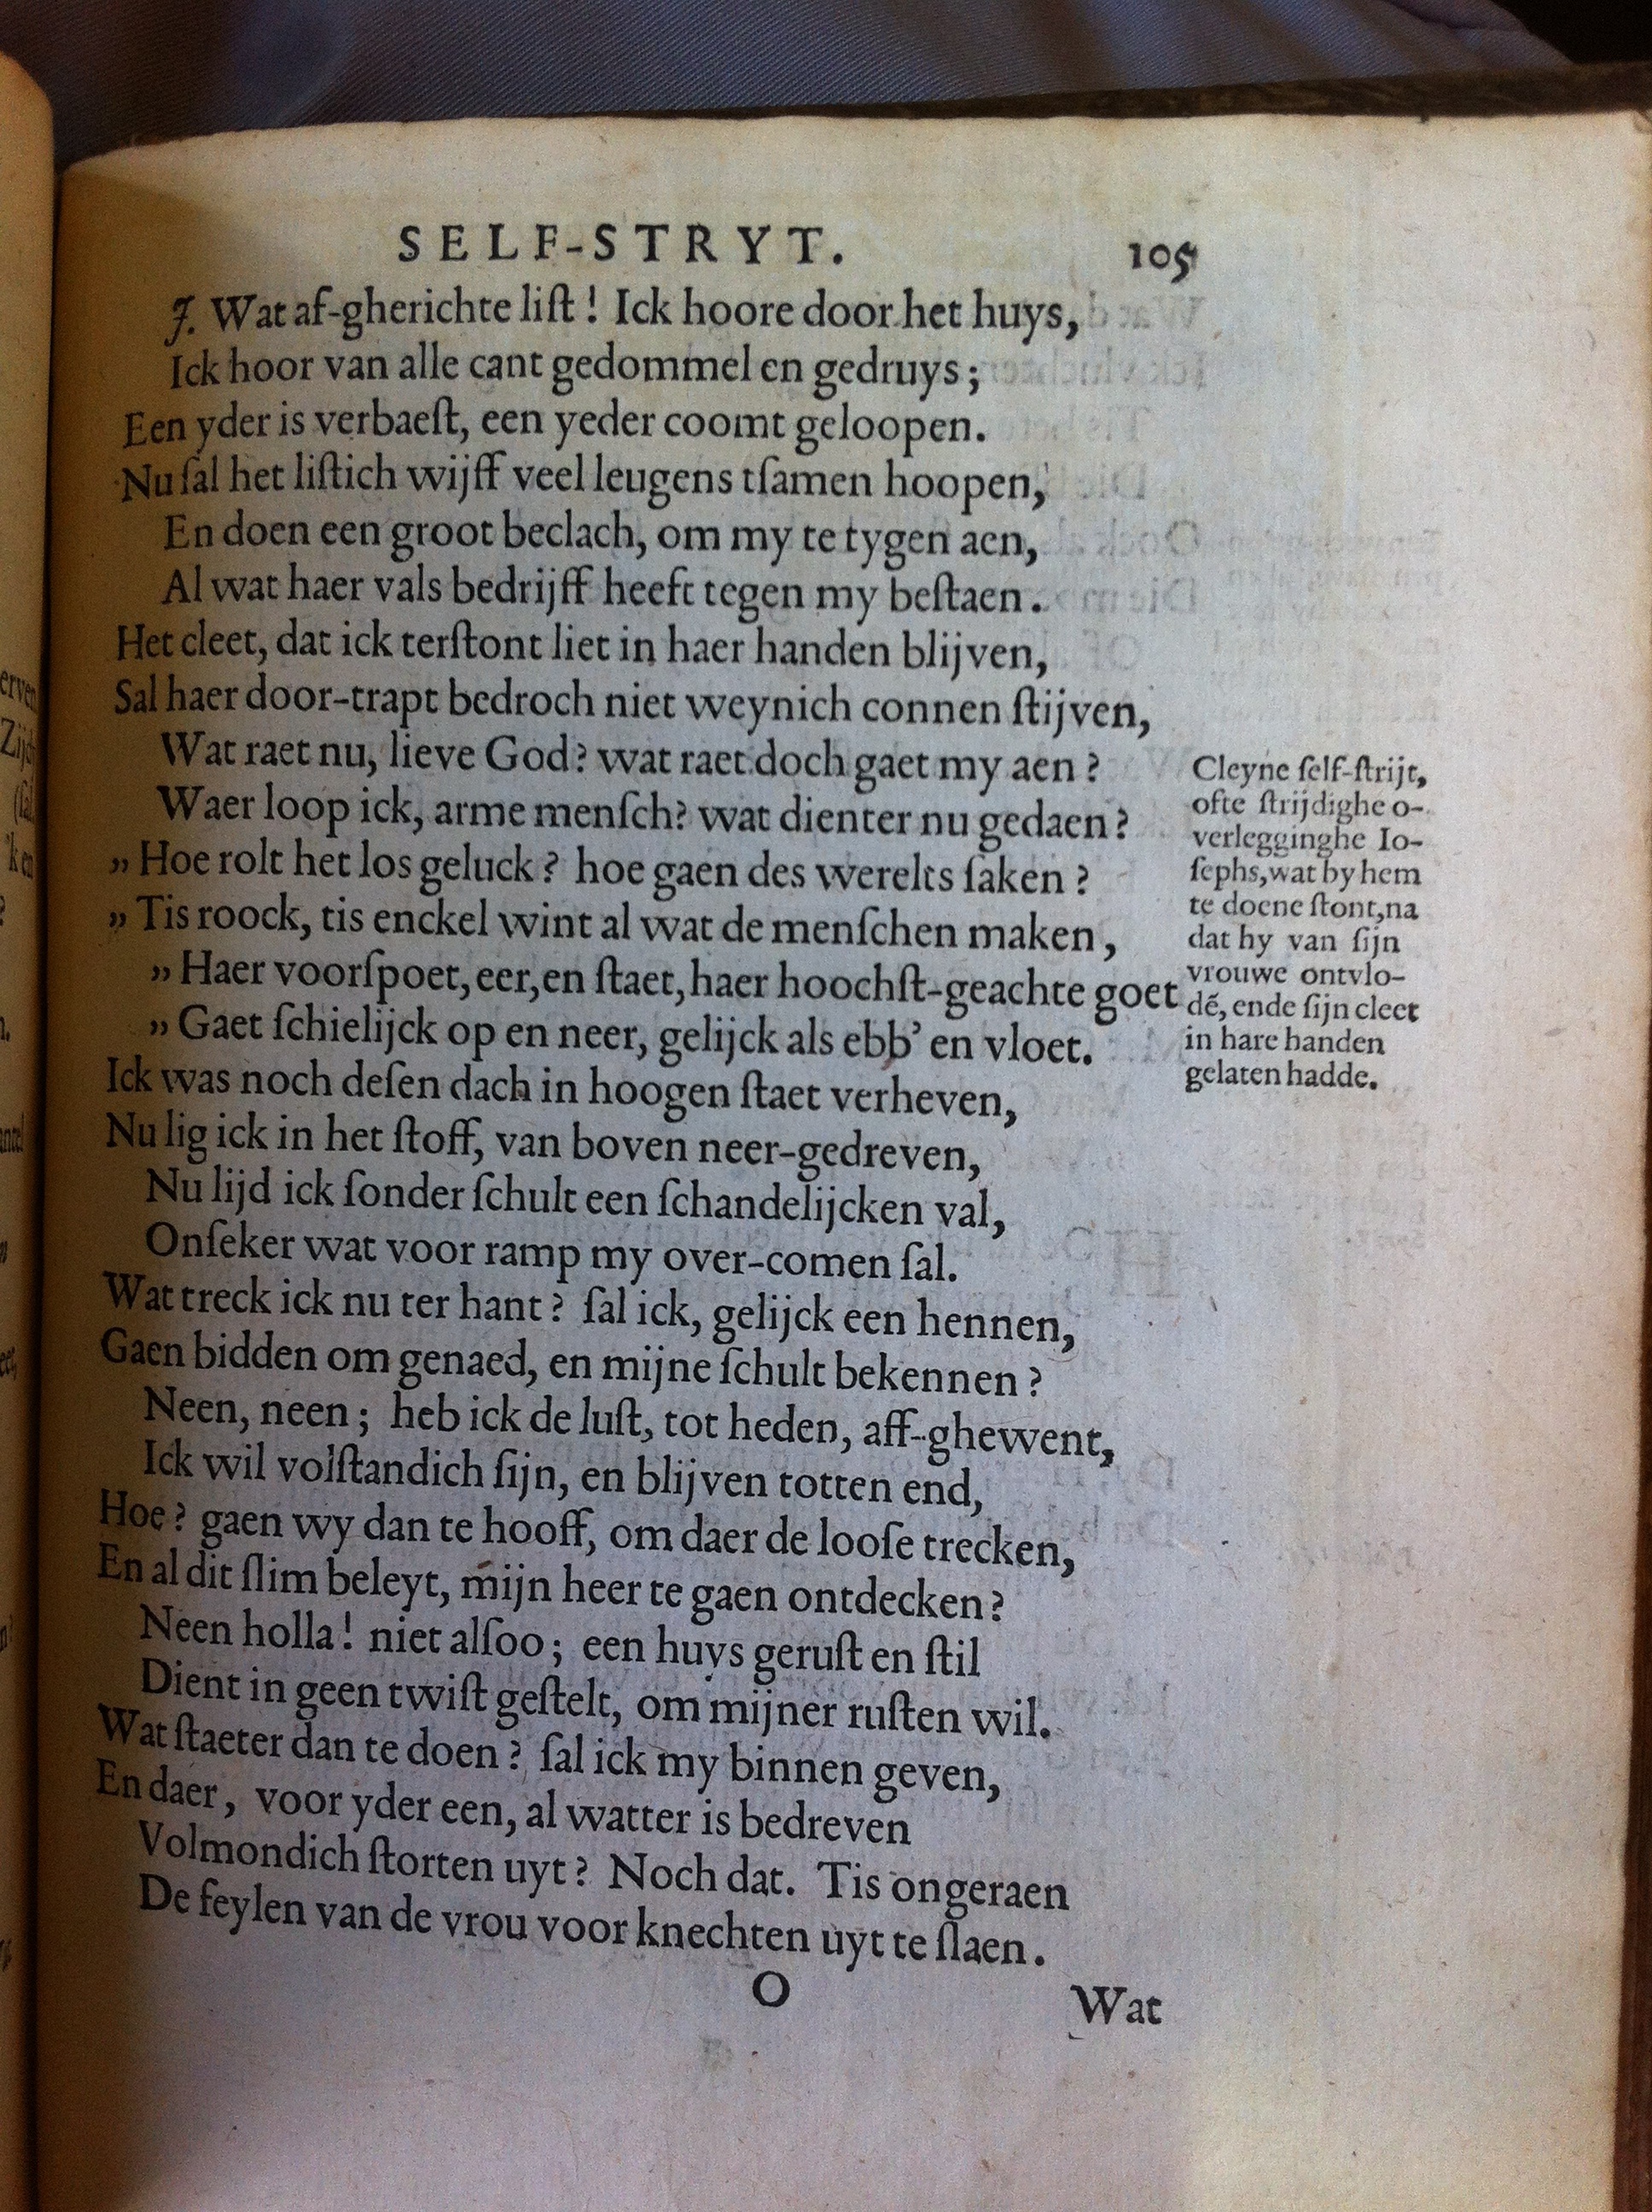 SELF-STRYT. 105
J. Wat af-gherichte liſt! Ick hoore door het huys,
Ick hoor van alle cant gedommel en gedruys;
Een yder is verbaeſt, een yeder coomt geloopen.
Nu ſal het liſtich wijff veel leugens tſamen hoopen,
En doen een groot beclach, om my te tygen aen,
Al wat haer vals bedrijff heeft tegen my beſtaen.
Het cleet, dat ick terſtont liet in haer handen blijven,
Sal haer door-trapt bedroch niet weynich connen ſtijven,
Wat raet nu, lieve God? wat raet doch gaet my aen?
Waer loop ick, arme menſch? wat dienter nu gedaen?
„ Hoe rolt het los geluck? hoe gaen des werelts ſaken?
„ Tis roock, tis enckel wint al wat de menſchen maken,
„ Haer voorſpoet, eer, en ſtaet, haer hoochſt-geachte goet
„ Gaet ſchielijck op en neer, gelijck als ebb' en vloet.
Ick was noch deſen dach in hoogen ſtaet verheven,
Nu lig ick in het ſtoff, van boven neer-gedreven,
Nu lijd ick ſonder ſchult een ſchandelijcken val,
Onſeker wat voor ramp my over-comen ſal.
Wat treck ick nu ter hant? ſal ick, gelijck een hennen,
Gaen bidden om genaed, en mijne ſchult bekennen?
Neen, neen; heb ick de luſt, tot heden, aff-ghewent,
Ick wil volſtandich ſijn, en blijven totten end,
Hoe? gaen wy dan te hooff, om daer de looſe trecken,
En al dit ſlim beleyt, mijn heer te gaen ontdecken?
Neen holla! niet alſoo; een huys geruſt en ſtil
Dient in geen twiſt geſtelt, om mijner ruſten wil.
Wat ſtaeter dan te doen? ſal ick my binnen geven,
En daer, voor yder een, al watter is bedreven
Volmondich ſtorten uyt? Noch dat. Tis ongeraen
De feylen van de vrou voor knechten uyt te ſlaen.
O Wat
Cleyne ſelf-ſtrijt,
ofte ſtrijdighe o-
verlegginghe Io-
ſephs, wat by hem
te doene ſtont, na
dat hy van ſijn
vrouwe ontvlo-
dẽ, ende ſijn cleet
in hare handen
gelaten hadde.